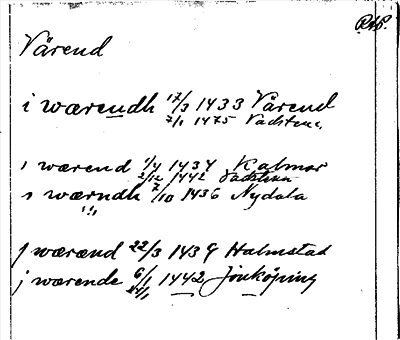 R.A.P.
Värend
i wærendh 17/3 1433 Värend
7/1 1475 Vadstena
i wærend 1/4 1434 Kalmar
2/12 1442 Vadstena
i wærndh 7/10 1436 Nydala
j wærænd 22/3 1439 Halmstad
j wærende 6/1 1442 Jönköping